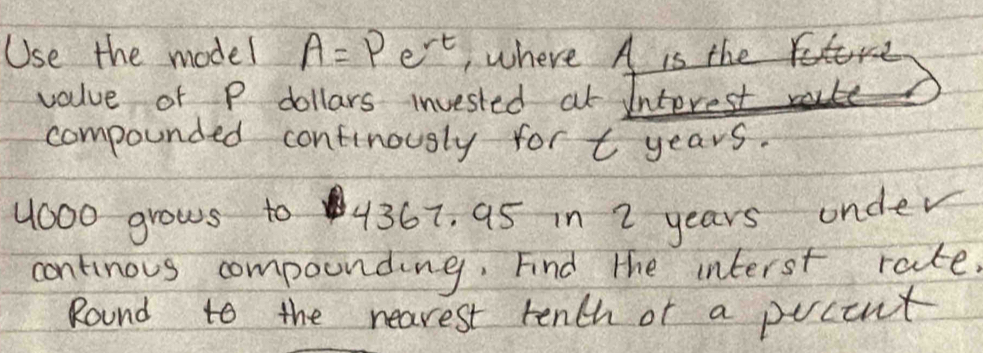 Use the model A = Pe^rt, where A is the future
value of P dollars invested at Interest rate
compounded continously for t years.
4000 grows to $4367.95 in 2 years under
continous compounding. Find the interst rate.
Round to the nearest tenth of a percent